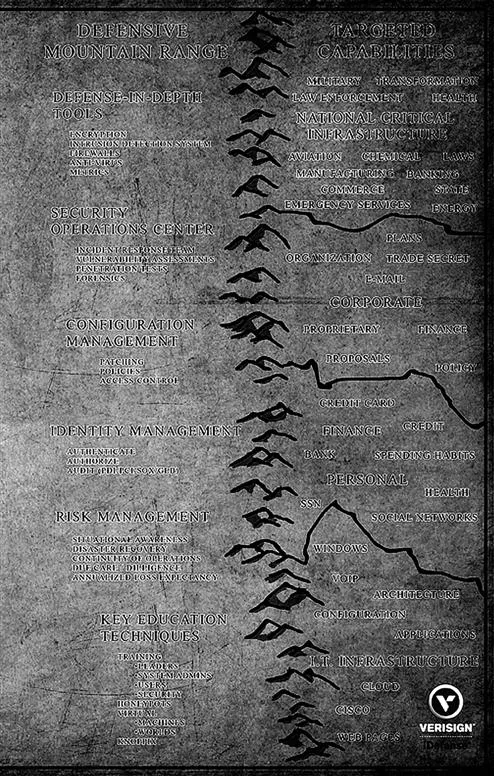 DEFENSIVE
MOUNTAIN RANGE
DEFENSE-IN-DEPTH
TOOLS
ENCRYPTION
INTRUSION DETECTION SYSTEM
FIREWALLS
ANTI-VIRUS
METRICS
SECURITY
OPERATIONS CENTER
INCIDENT RESPONSE TEAM
VULNERABILITY ASSESSMENTS
PENETRATION TESTS
FORENSICS
CONFIGURATION
MANAGEMENT
PATCHING
POLICIES
ACCESS CONTROL
IDENTITY MANAGEMENT
AUTHENTICATE
AUTHORIZE
AUDIT
RISK MANAGEMENT
SITUATIONAL AWARENESS
DISASTER RECOVERY
CONTINUITY OF OPERATIONS
DUE CARE / DILIGENCE
ANNUALIZED LOSS EXPECTANCY
KEY EDUCATION
TECHNIQUES
TRAINING
-LEADERS
-SYSTEM ADMINS
-USERS
-SECURITY
HONEYPOTS
VIRTUAL
-MACHINES
-WORLDS
KNOPPIX
TARGETED
CAPABILITIES
MILITARY TRANSFORMATION
LAW ENFORCEMENT HEALTH
NATIONAL CRITICAL
INFRASTRUCTURE
AVIATION CHEMICAL LAWS
MANUFACTURING BANKING
COMMERCE STATE
EMERGENCY SERVICES ENERGY
PLANS
ORGANIZATION TRADE SECRET
E-MAIL
CORPORATE
PROPRIETARY FINANCE
PROPOSALS
POLICY
CREDIT CARD
FINANCE CREDIT
BANK SPENDING HABITS
PERSONAL
HEALTH
SSN
SOCIAL NETWORKS
WINDOWS
VOIP
ARCHITECTURE
CONFIGURATION
APPLICATIONS
I.T. INFRASTRUCTURE
CLOUD
CISCO
WEB PAGES
VERISIGN